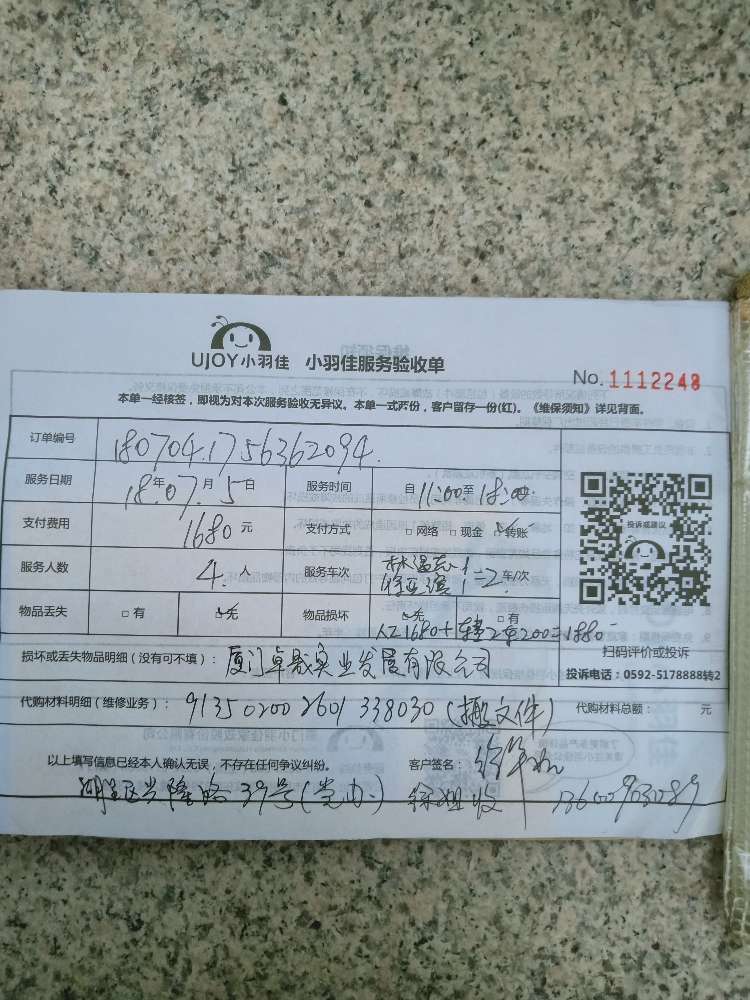 UJOY小羽佳 小羽佳服务验收单
No. 1112248
本单一经核签，即视为对本次服务验收无异议。本单一式两份，客户留存一份(红)。《维保须知》详见背面。
订单编号 180704.1756362094.
服务日期 18年.07.月5日 服务时间 自11:00至18:00.
支付费用 1680元 支付方式 □网络 □现金 □转账
服务人数 4.人 服务车次 2车/次
物品丢失 □有 □无 物品损坏 □无 □有
人工1680+ 200=1880
投诉或建议
扫码评价或投诉
损坏或丢失物品明细（没有可不填）：厦门卓晟实业发展有限公司
投诉电话：0592-5178888转2
代购材料明细（维修业务）：91350200 2601 338030 (搬文件) 代购材料总额： 元
以上填写信息已经本人确认无误，不存在任何争议纠纷。 客户签名：
39号(党办) 徐姐收